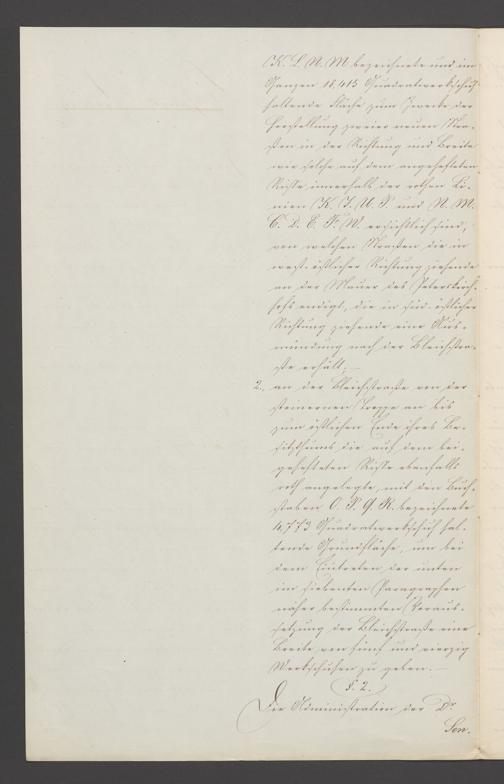 K. L. N. M bezeichnete und im
Ganzen 18,415 Quadratwerkschuh
haltende Fläche zum Zwecke der
Herstellung zweier neuen Stra-
ßen in der Richtung und Breite
wie solche auf dem angehefteten
Risse innerhalb der rothen Li-
nien (K. I. U. P. und N. M.
C. D. E. F. W. ersichtlich sind,
von welchen Straßen die in
west-östlicher Richtung ziehende
an der Mauer des Peterskirch-
hofs endigt, die in süd-östlicher
Richtung ziehende eine Aus-
mündung nach der Bleichstra-
ße erhält; —
2., an der Bleichstraße von der
steinernen Treppe an bis
zum östlichen Ende ihres Be-
sitzthums die auf dem bei-
gehefteten Risse ebenfalls
roth angelegte, mit den Buch-
staben O. P. Q. R. bezeichnete
4,773 Quadratwerkschuh hal-
tende Grundfläche, um bei
dem Eintreten der unten
im siebenten Paragraphen
näher bestimmten Voraus-
setzung der Bleichstraße eine
Breite von fünf und vierzig
Werkschuhen zu geben. —
§. 2.
Die Administration der Dr.
Sen.